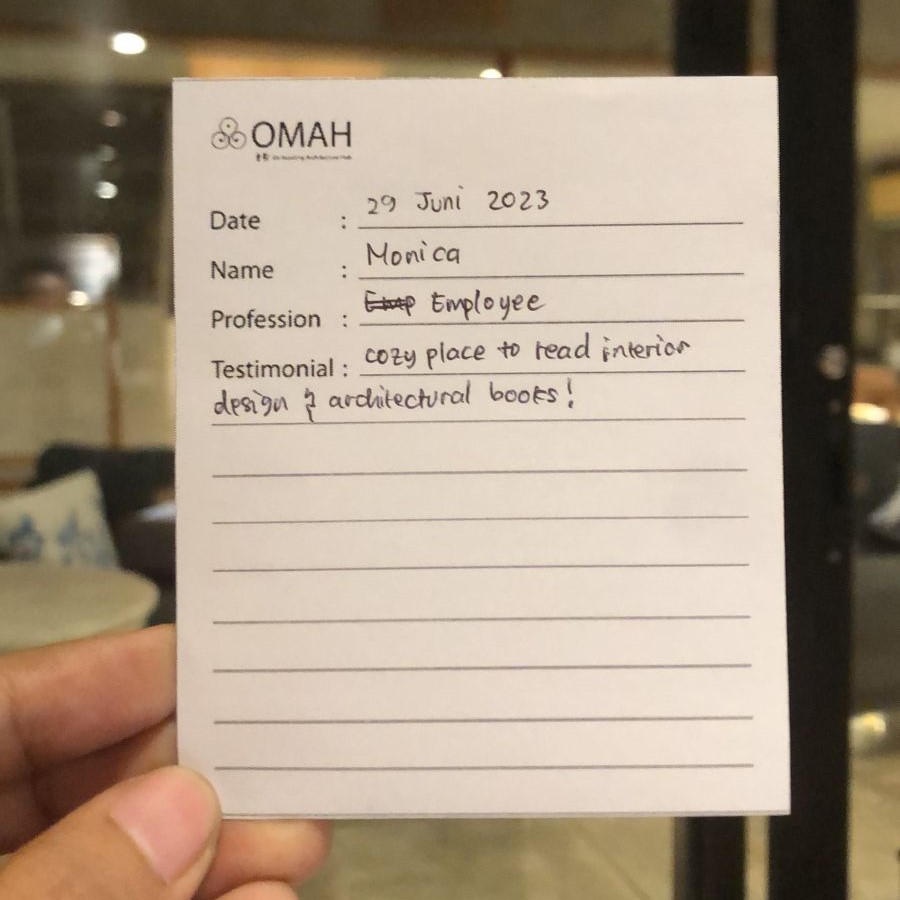 OMAH
Architecture Hub
Date : 29 Juni 2023
Name : Monica
Profession : Emp Employee
Testimonial : cozy place to read interior
design & architectural books!